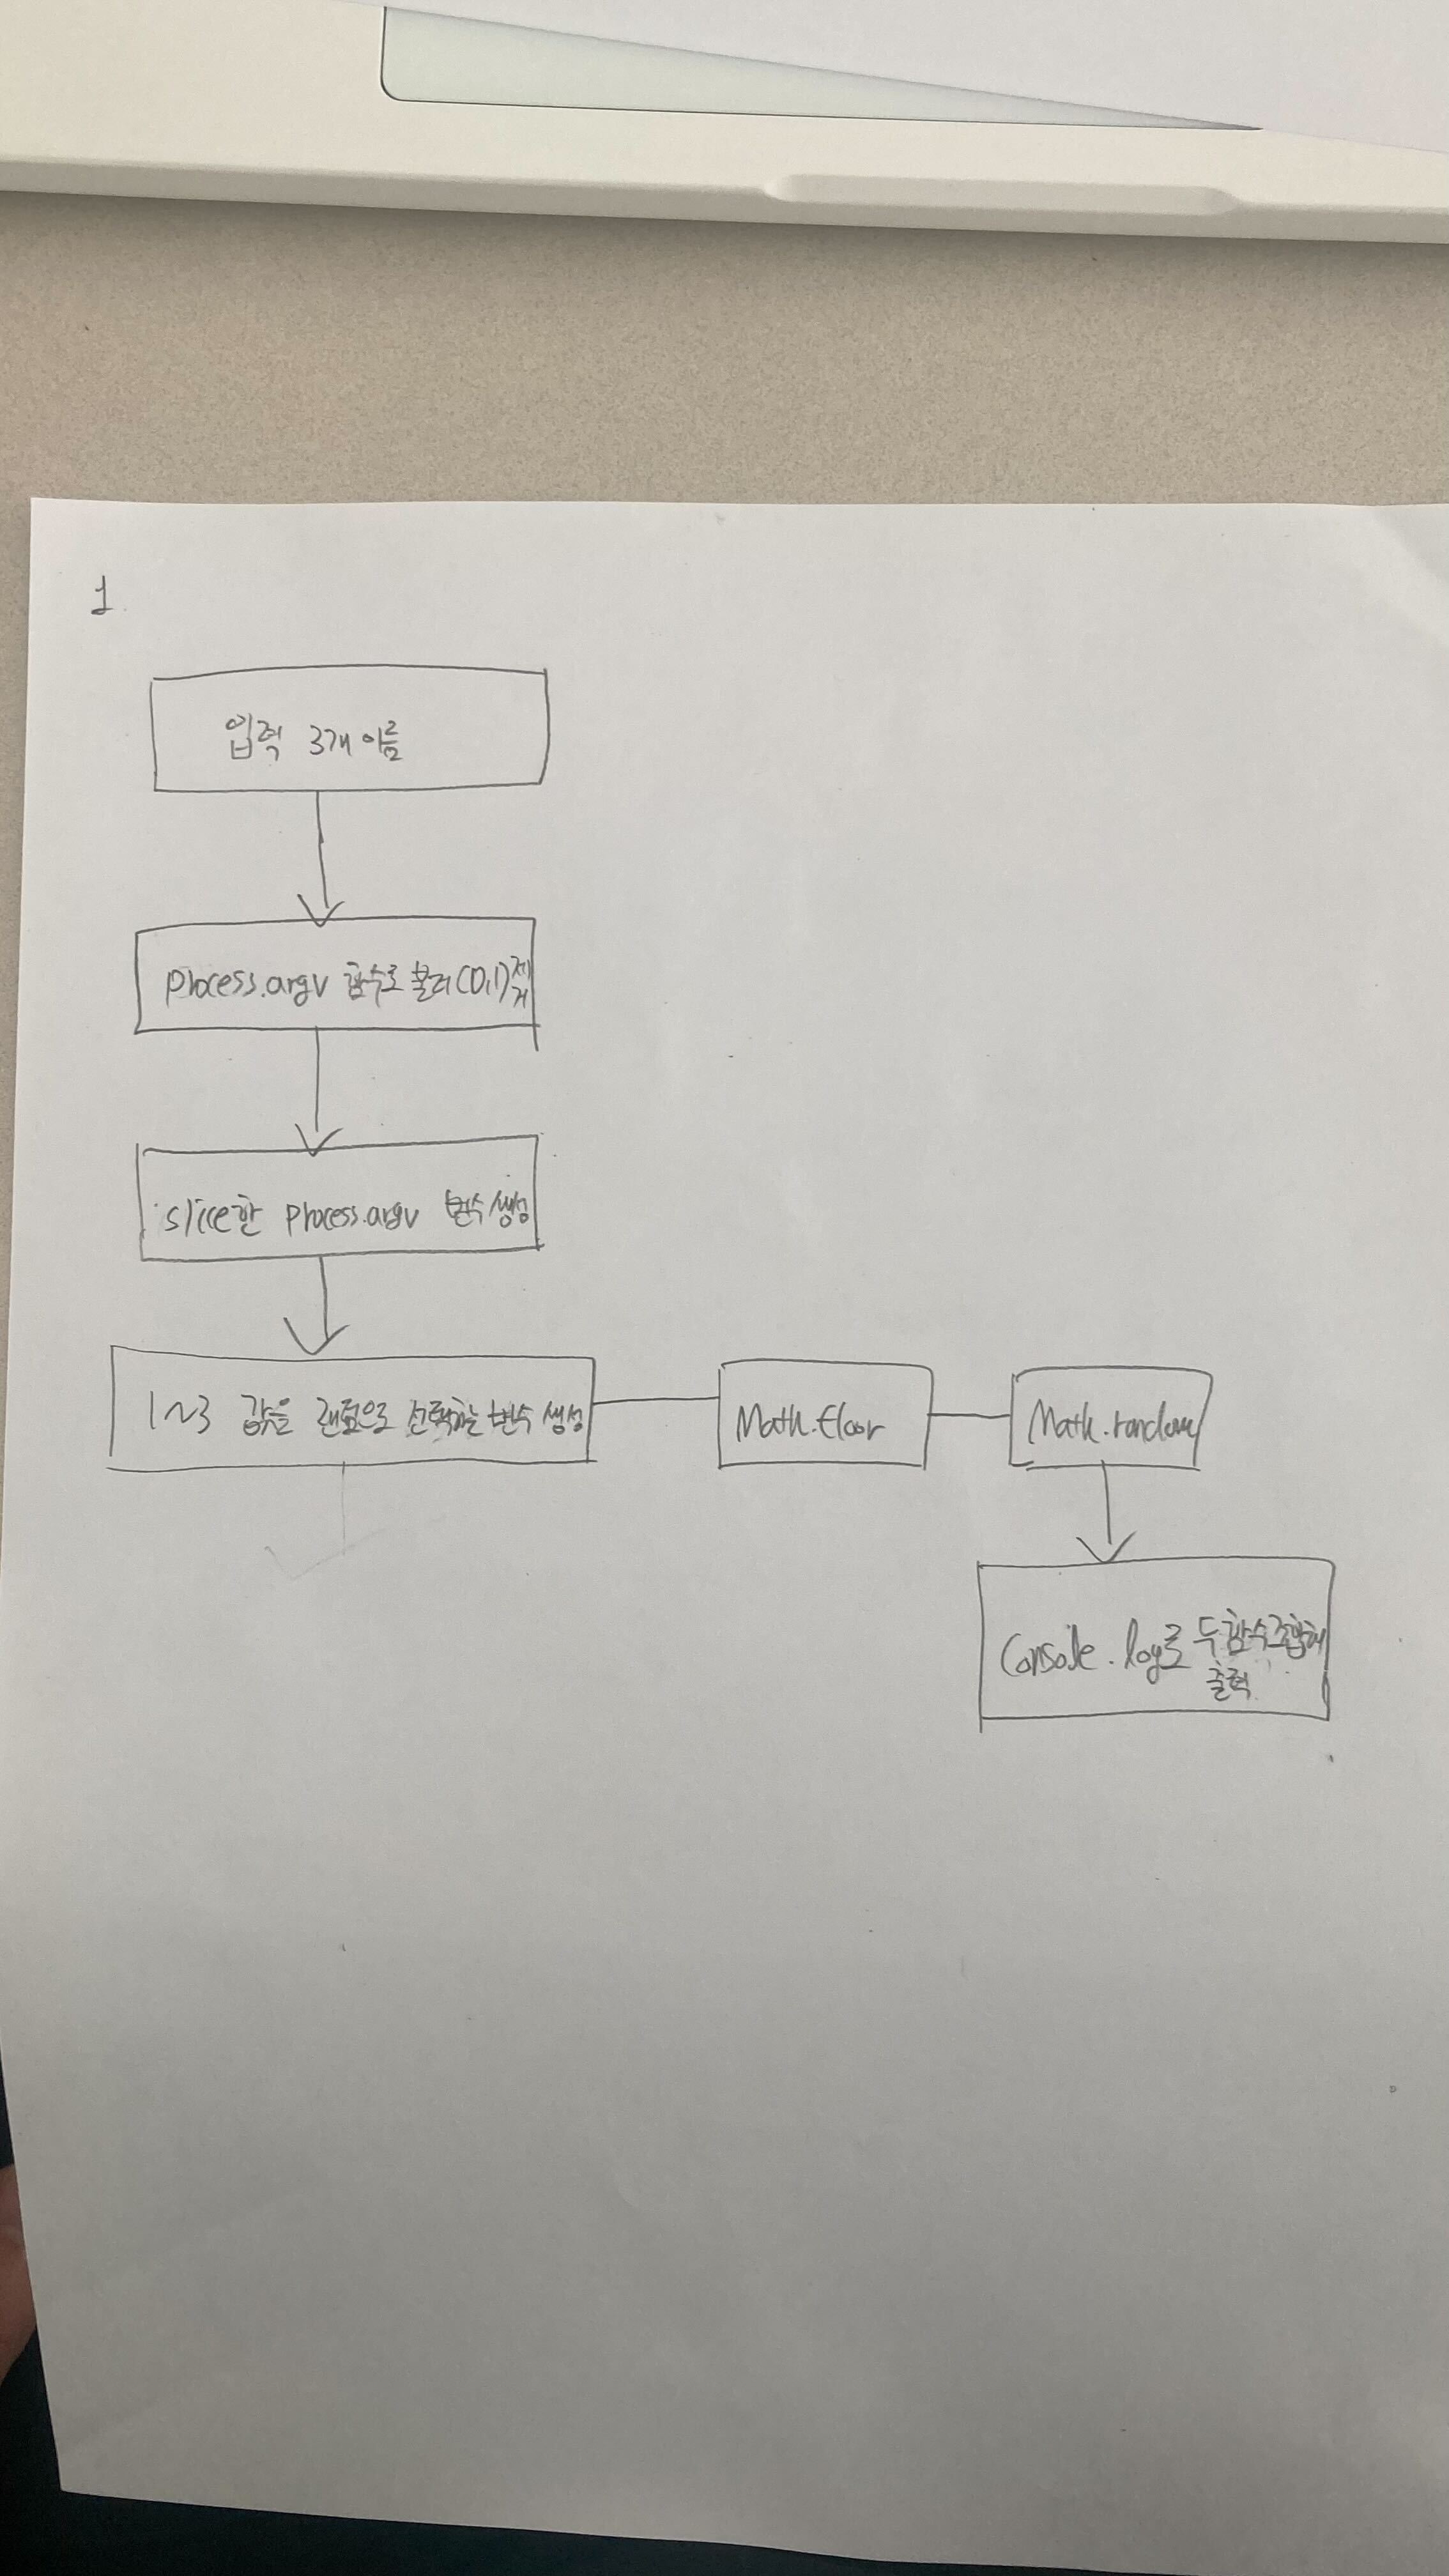 1
입력 3개 이름
process.argv 함수로 불러 (0,1) 제
거
slice한 process.argv 변수 생성
1~3 값을 랜덤으로 선택하는 변수 생성
Math.floor
Math.random
Console.log로 두 함수 조합해
출력